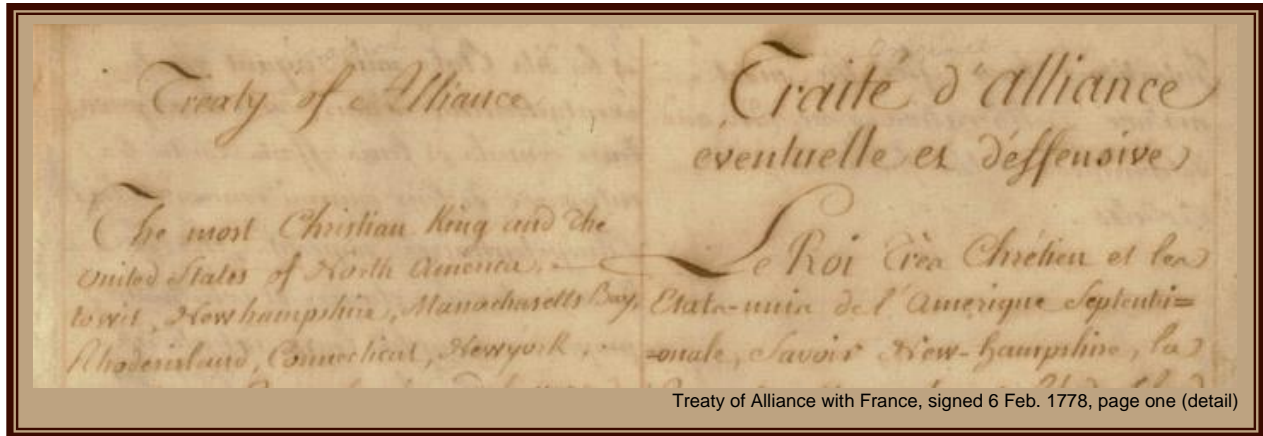 Treaty of Alliance
The most Christian King and the
United States of North America,
to wit, Newhampshire, Massachusetts Bay,
Rhodeisland, Connecticut, Newyork,
Traité d'alliance
eventuelle et déffensive
Le Roi très Chrétien et les
Etats-unis de l'amerique Septentri=
=onale, Savoir New-hampshire, la
Treaty of Alliance with France, signed 6 Feb. 1778, page one (detail)